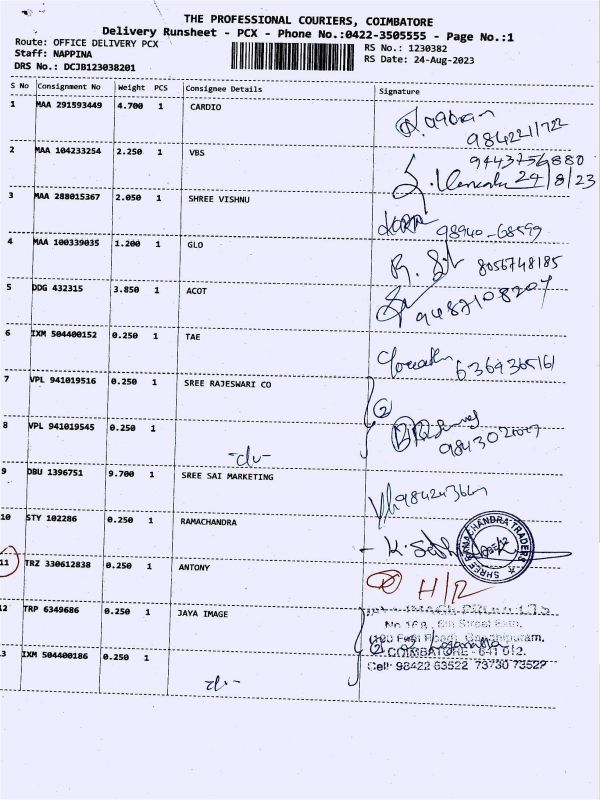 THE PROFESSIONAL COURIERS, COIMBATORE
Delivery Runsheet - PCX - Phone No.:0422-3505555 - Page No.:1
Route: OFFICE DELIVERY PCX
Staff: NAPPINA
DRS No.: DCJB123038201
RS No.: 1230382
RS Date: 24-Aug-2023
S No Consignment No Weight PCS Consignee Details Signature
1 MAA 291593449 4.700 1 CARDIO
9842211722
2 MAA 104233254 2.250 1 VBS
9443756880
24/8/23
3 MAA 288015367 2.050 1 SHREE VISHNU
98940-68599
4 MAA 100339035 1.200 1 GLO
8056748185
5 DDG 432315 3.850 1 ACOT
9487108207
6 IXM 504400152 0.250 1 TAE
6369365161
7 VPL 941019516 0.250 1 SREE RAJESWARI CO
2
8 VPL 941019545 0.250 1
-do-
9 DBU 1396751 9.700 1 SREE SAI MARKETING
10 STY 102286 0.250 1 RAMACHANDRA
SHREE RAMACHANDRA TRADERS
11 TRZ 330612838 0.250 1 ANTONY
H/R
12 TRP 6349686 0.250 1 JAYA IMAGE
Gandhipuram,
2
COIMBATORE - 641 012.
Cell: 98422 63522 73730 73522
3 IXM 504400186 0.250 1
-do-